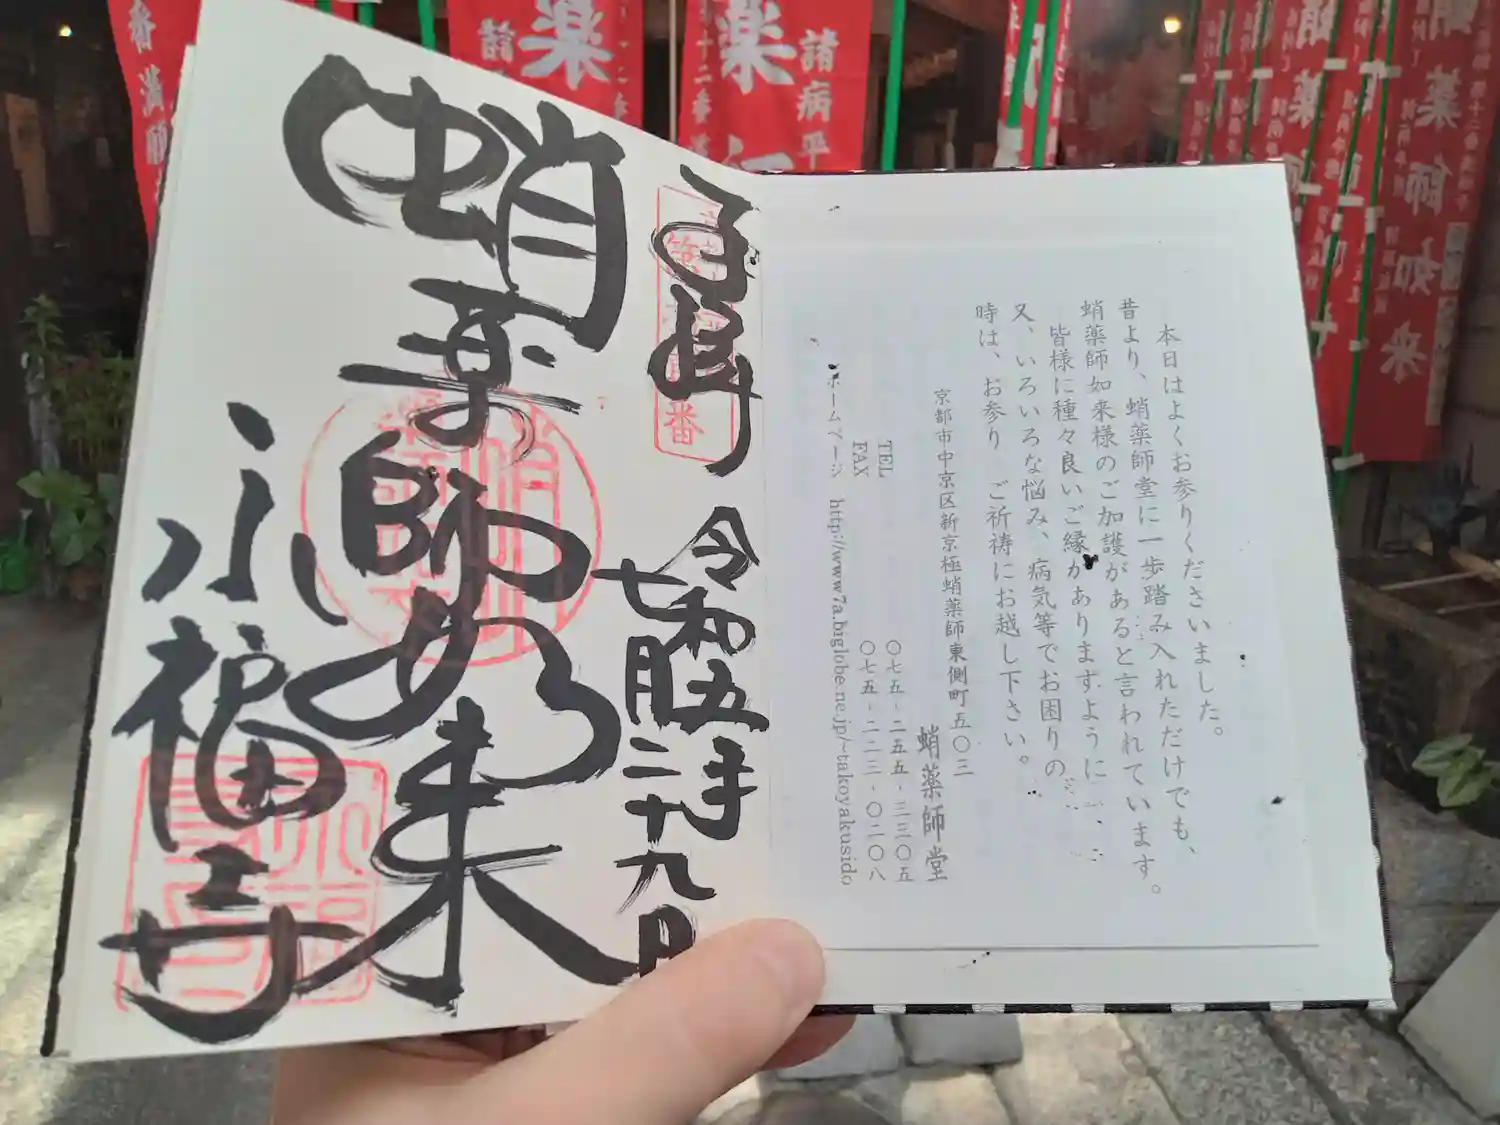 本日はよくお参りくださいました。
昔より、蛸薬師堂に一歩踏み入れただけでも、
蛸薬師如来様のご加護があると言われています。
皆様に種々良いご縁がありますように…、
又、いろいろな悩み、病気等でお困りの
時は、お参り ご祈祷にお越し下さい。
京都市中京区新京極蛸薬師東側町五〇三
蛸薬師堂
TEL 〇七五-二五五-三三〇五
FAX 〇七五-二二三-〇二〇八
ホームページ http://www7a.biglobe.ne.jp/~takoyakusido
奉拝
令和五年
七月二十九日
蛸薬師如来
永福寺
番
諸病平
薬
十二番
薬
諸
番満願
蛸薬師如来